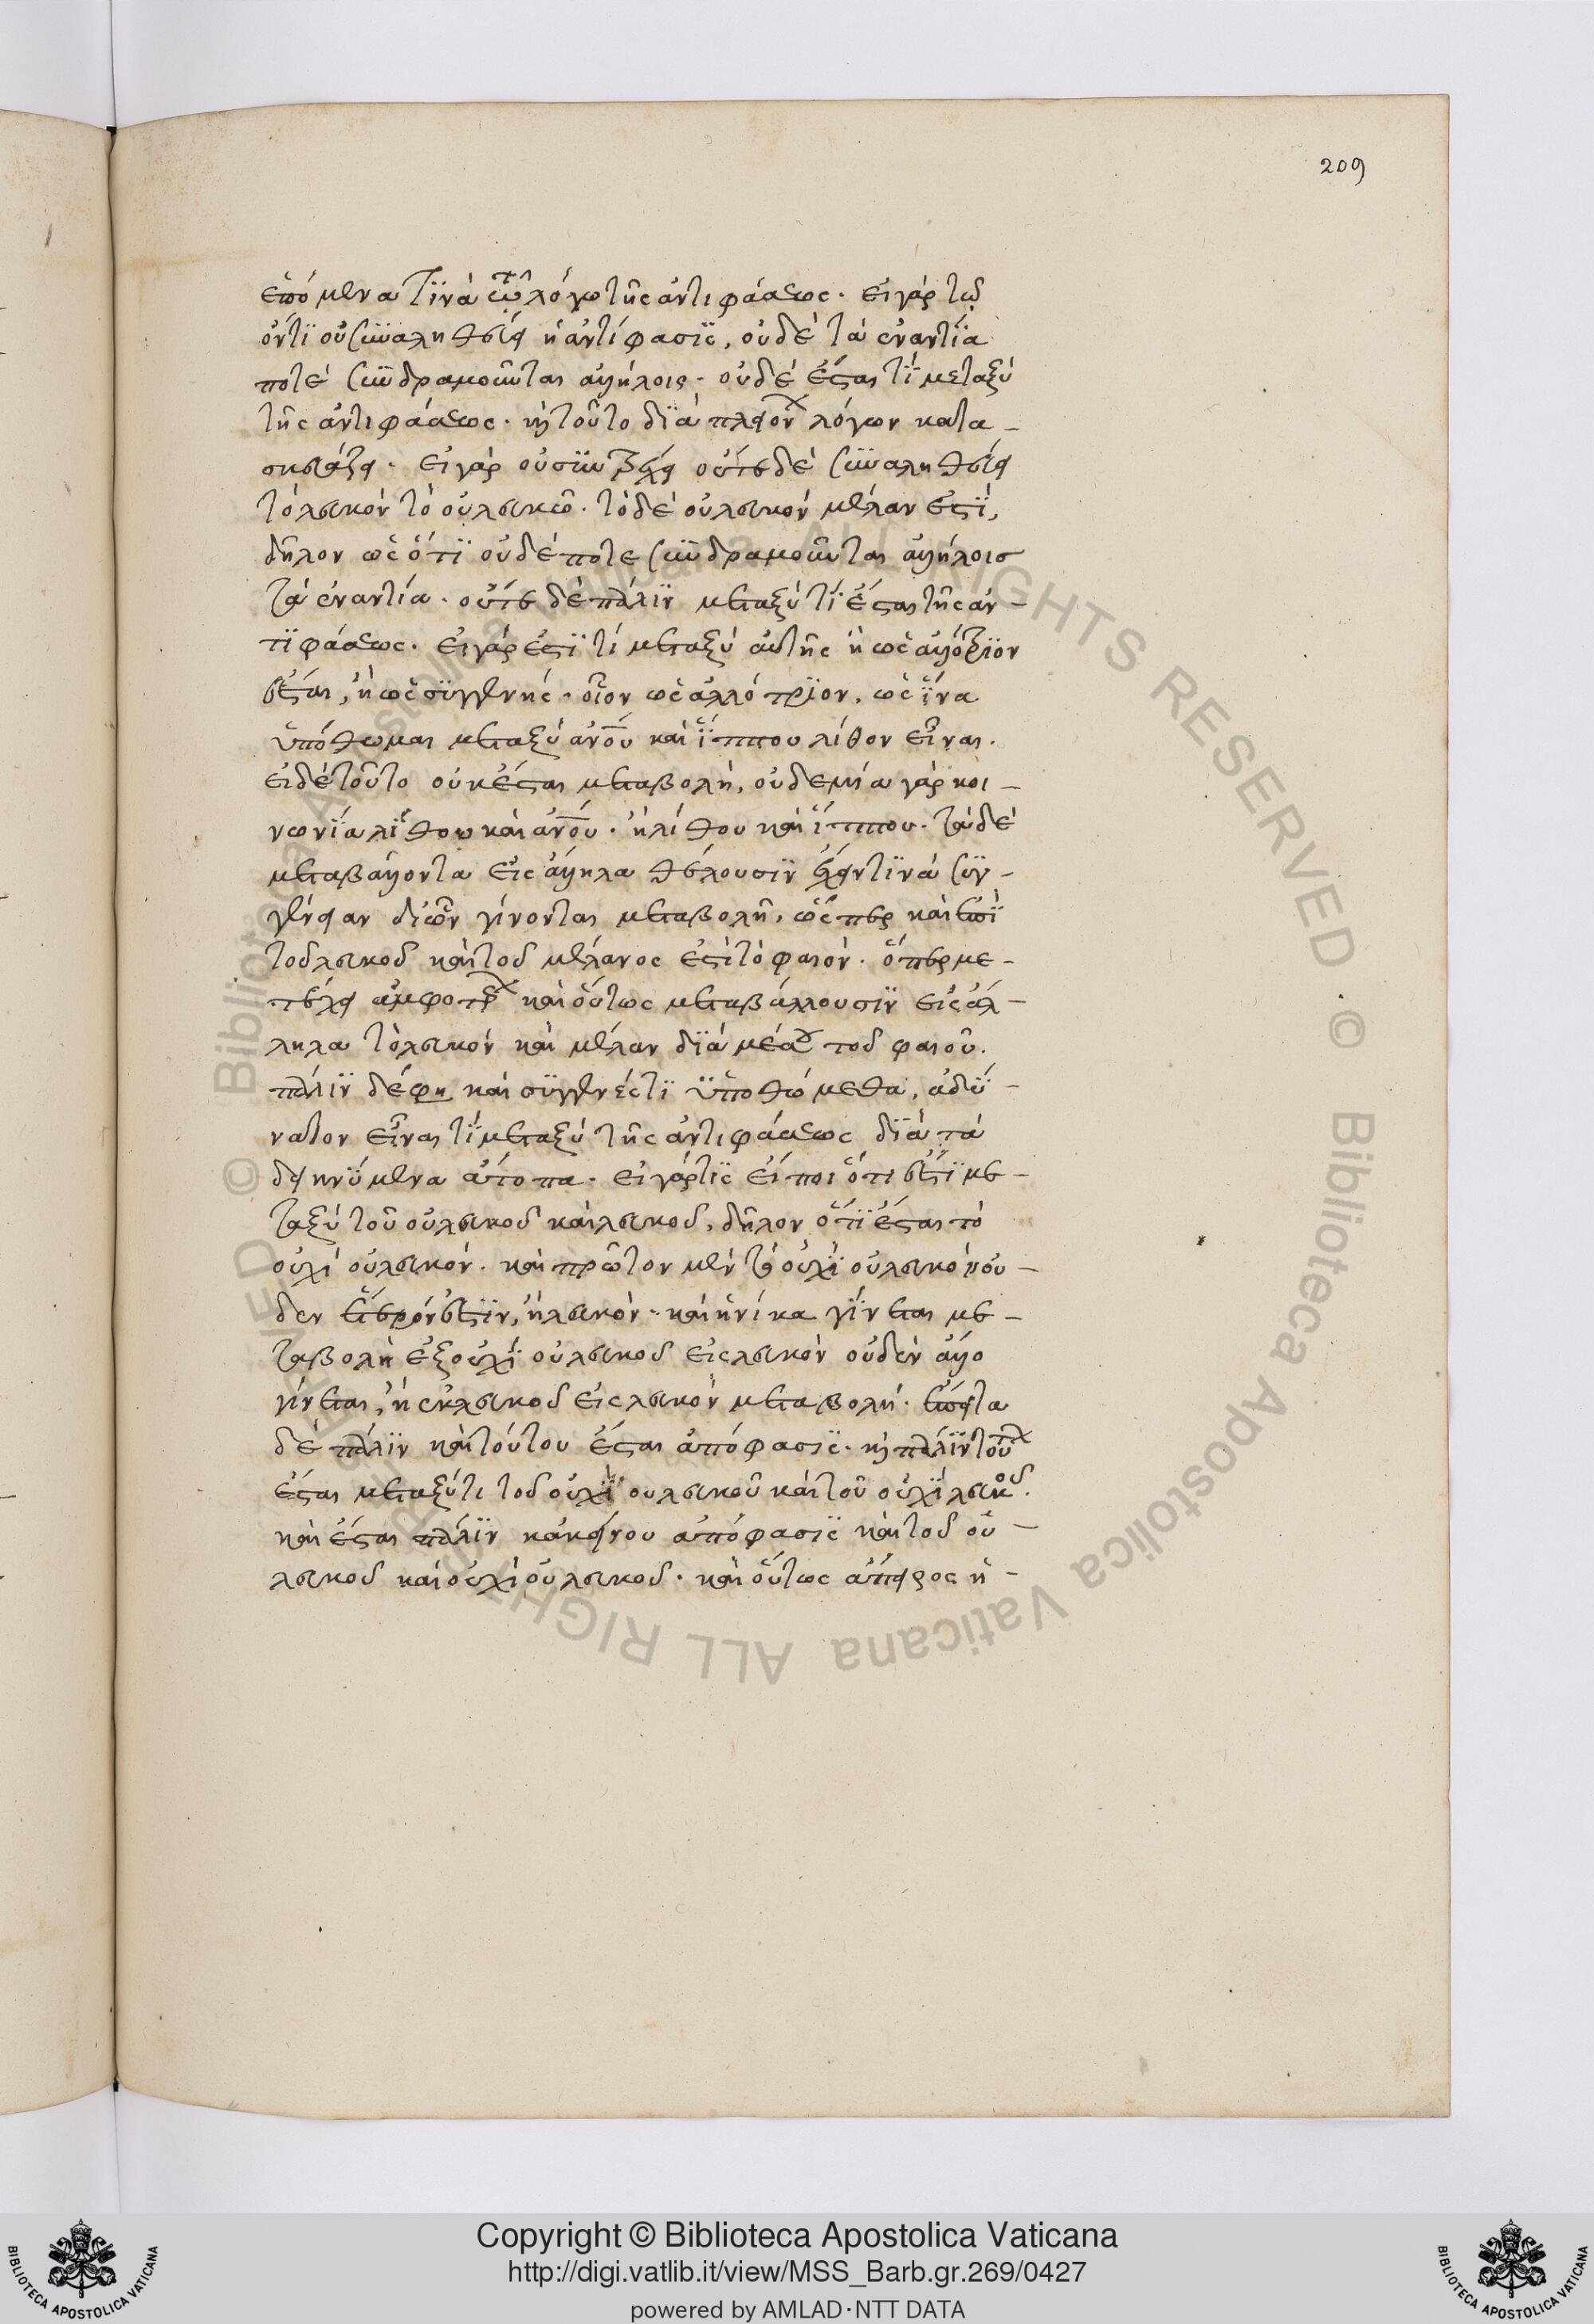 209
ἑπόμενά τινα τῶ λόγω τῆς ἀντιφάσεως. εἰ γὰρ τῶ
ὄντι οὐ συναληθεύει ἡ ἀντίφασις, οὐδὲ τὰ ἐναντία
ποτὲ συνδραμοῦνται ἀλλήλοις. οὐδὲ ἔσται τί μεταξὺ
τῆς ἀντιφάσεως. καὶ τοῦτο διὰ πλειόνων λόγων κατα-
σκευάζει. εἰ γὰρ οὐ συντρέχει οὔτε δὲ συναληθεύει
τὸ λευκὸν τὸ οὐ λευκῶ. τὸ δὲ οὐ λευκὸν μέλαν ἐστί,
δῆλον ὡς ὅτι οὐδέποτε συνδραμοῦνται ἀλλήλοισ
τὰ ἐναντία. οὔτε δὲ πάλιν μεταξύ τί ἔσται τῆς ἀν-
τιφάσεως. εἰ γάρ ἐστί τί μεταξὺ αὐτῆς ἢ ὡς ἀλλότριον
ἔσται, ἢ ὡς συγγενής. οἷον ὡς ἀλλότριον, ὡς ἵνα
ὑπόθωμαι μεταξὺ ἀνου καὶ ἵππου λίθον εἶναι.
εἰ δὲ τοῦτο οὐκ ἔσται μεταβολὴ, οὐδεμία γὰρ κοι-
νωνία λίθου καὶ ἀνου. ἢ λίθου καὶ ἵππου. τὰ δὲ
μεταβάλλοντα εἰς ἄλληλα θέλουσιν ἔχειν τινὰ συγ-
γένειαν δι' ὧν γίνονται μεταβολῆ, ὥσπερ καὶ ἐπὶ
τοῦ λευκοῦ καὶ τοῦ μέλανος ἐστὶ τὸ φαιόν. ὅπερ με-
τέχει ἀμφοτέρων καὶ οὕτως μεταβάλλουσιν εἰς ἄλ-
ληλα τὸ λευκὸν καὶ μέλαν διὰ μέσου τοῦ φαιοῦ.
πάλιν δέ φη καὶ συγγενές τι ὑποθώμεθα, ἀδύ-
νατον εἶναι τί μεταξὺ τῆς ἀντιφάσεως διὰ τὰ
δεικνύμενα ἄτοπα. εἰ γάρ τις εἴποι ὅτι ἔστι με-
ταξὺ τοῦ οὐ λευκοῦ καὶ λευκοῦ, δῆλον ὅτι ἔσται τὸ
οὐχὶ οὐ λευκόν. καὶ πρῶτον μὲν τὸ οὐχὶ οὐ λευκὸν οὐ-
δεν ἕτερόν ἐστιν, ἢ λευκόν. καὶ ἡνίκα γίνεται με-
ταβολὴ ἐξ οὐχὶ οὐ λευκοῦ εἰς λευκὸν οὐδὲν ἄλλο
γίνεται, ἢ ἐκ λευκοῦ εἰς λευκὸν μεταβολή. ἔπειτα
δὲ πάλιν καὶ τούτου ἔσται ἀπόφασις. καὶ πάλιν τούτων
ἔσται μεταξύ τι τοῦ οὐχὶ ου λευκοῦ καὶ τοῦ οὐχὶ λευκοῦ.
καὶ ἔσται πάλιν κἀκείνου ἀπόφασις καὶ τοῦ οὐ-
λευκοῦ καὶ οὐχὶ οὐ λευκοῦ. καὶ οὕτως ἄπειρος ἡ-
Copyright © Biblioteca Apostolica Vaticana
http://digi.vatlib.it/view/MSS_Barb.gr.269/0427
powered by AMLAD·NTT DATA